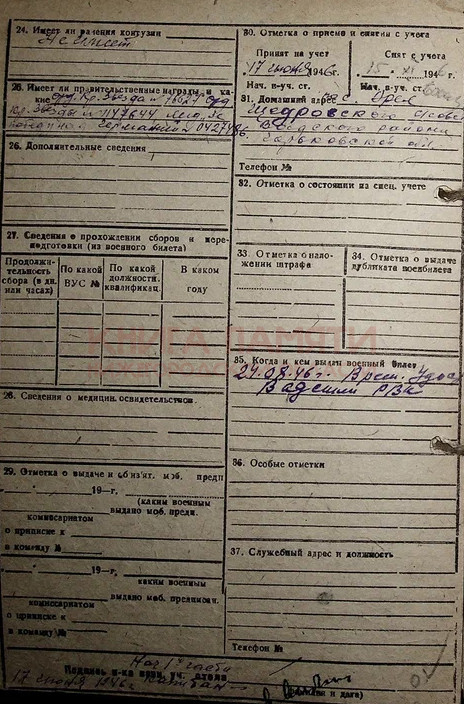 24. Имеет ли ранения контузии
Не имеет
25. Имеет ли правительственные награды и какие
Кр. Звезда
Кр. Звезды 1147644
Германией 0427486
26. Дополнительные сведения
27. Сведения о прохождении сборов и переподготовки (из военного билета)
Продолжительность сбора (в дн. или часах)
По какой ВУС №
По какой должности. квалификац.
В каком году
28. Сведения о медицин. освидетельствов.
29. Отметка о выдаче и об из'ят. моб. предп
19—г,
(каким военным
выдано моб. предп.
комиссариатом
о приписке к
в команду №
19—г,
каким военным
комиссариатом
выдано моб. предписан.
о приписке к
в команду №
Подпись н-ка воен. уч. стола
Нач 1 части
17 июня 1946г. Капитан
30. Отметка о приеме и снятии с учета
Принят на учет
Снят с учета
17 июня 1946г.
Нач. в-уч. ст.
Нач. в-уч. ст.
31. Домашний адрес
района
Горьковской обл.
Телефон №
32. Отметка о состоянии на спец. учете
33. Отметка о наложении штрафа
34. Отметка о выдаче дубликата военбилета
КНИГА ПАМЯТИ
35. Когда и кем выдан военный билет
Врем. Удос
Вадский РВК
36. Особые отметки
37. Служебный адрес и должность
Телефон №
и дата)